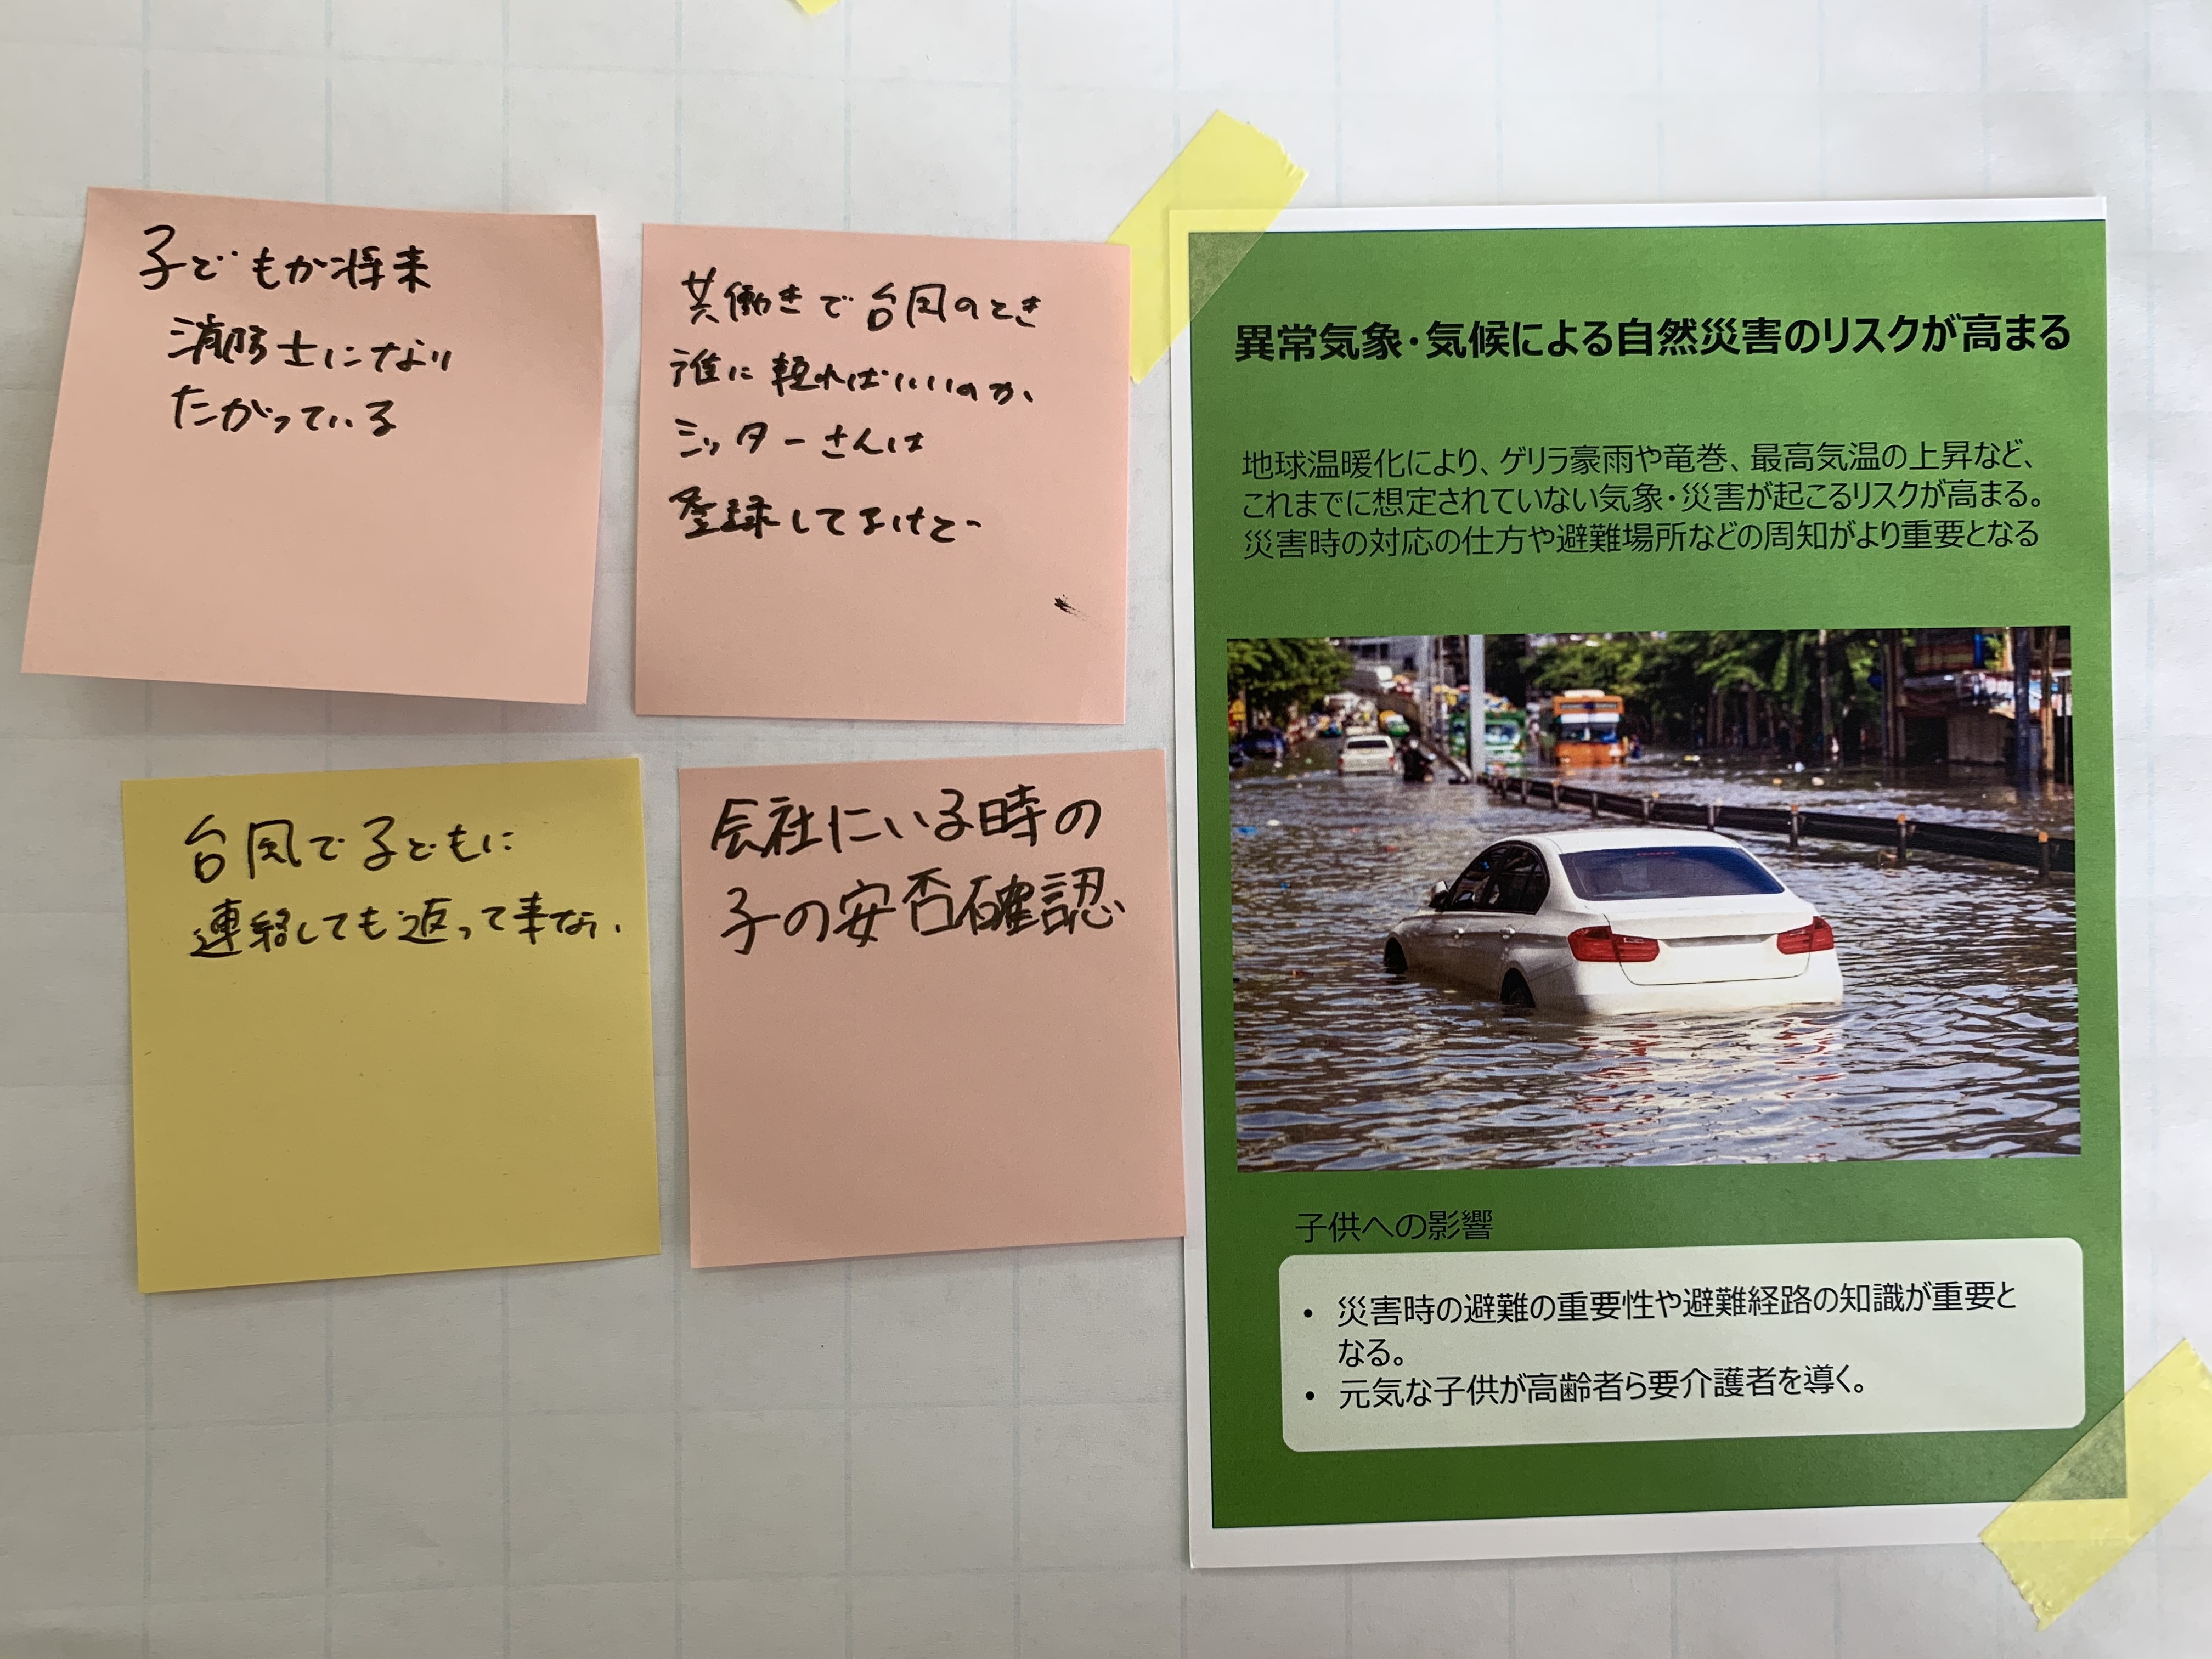 子どもが将来
消防士になり
たがっている
共働きで台風のとき
誰に頼ればいいのか、
シッターさんは
登録してるけど…
台風で子どもに
連絡しても返って来ない.
会社にいる時の
子の安否確認
異常気象・気候による自然災害のリスクが高まる
地球温暖化により、ゲリラ豪雨や竜巻、最高気温の上昇など、
これまでに想定されていない気象・災害が起こるリスクが高まる。
災害時の対応の仕方や避難場所などの周知がより重要となる
子供への影響
• 災害時の避難の重要性や避難経路の知識が重要と
なる。
• 元気な子供が高齢者ら要介護者を導く。